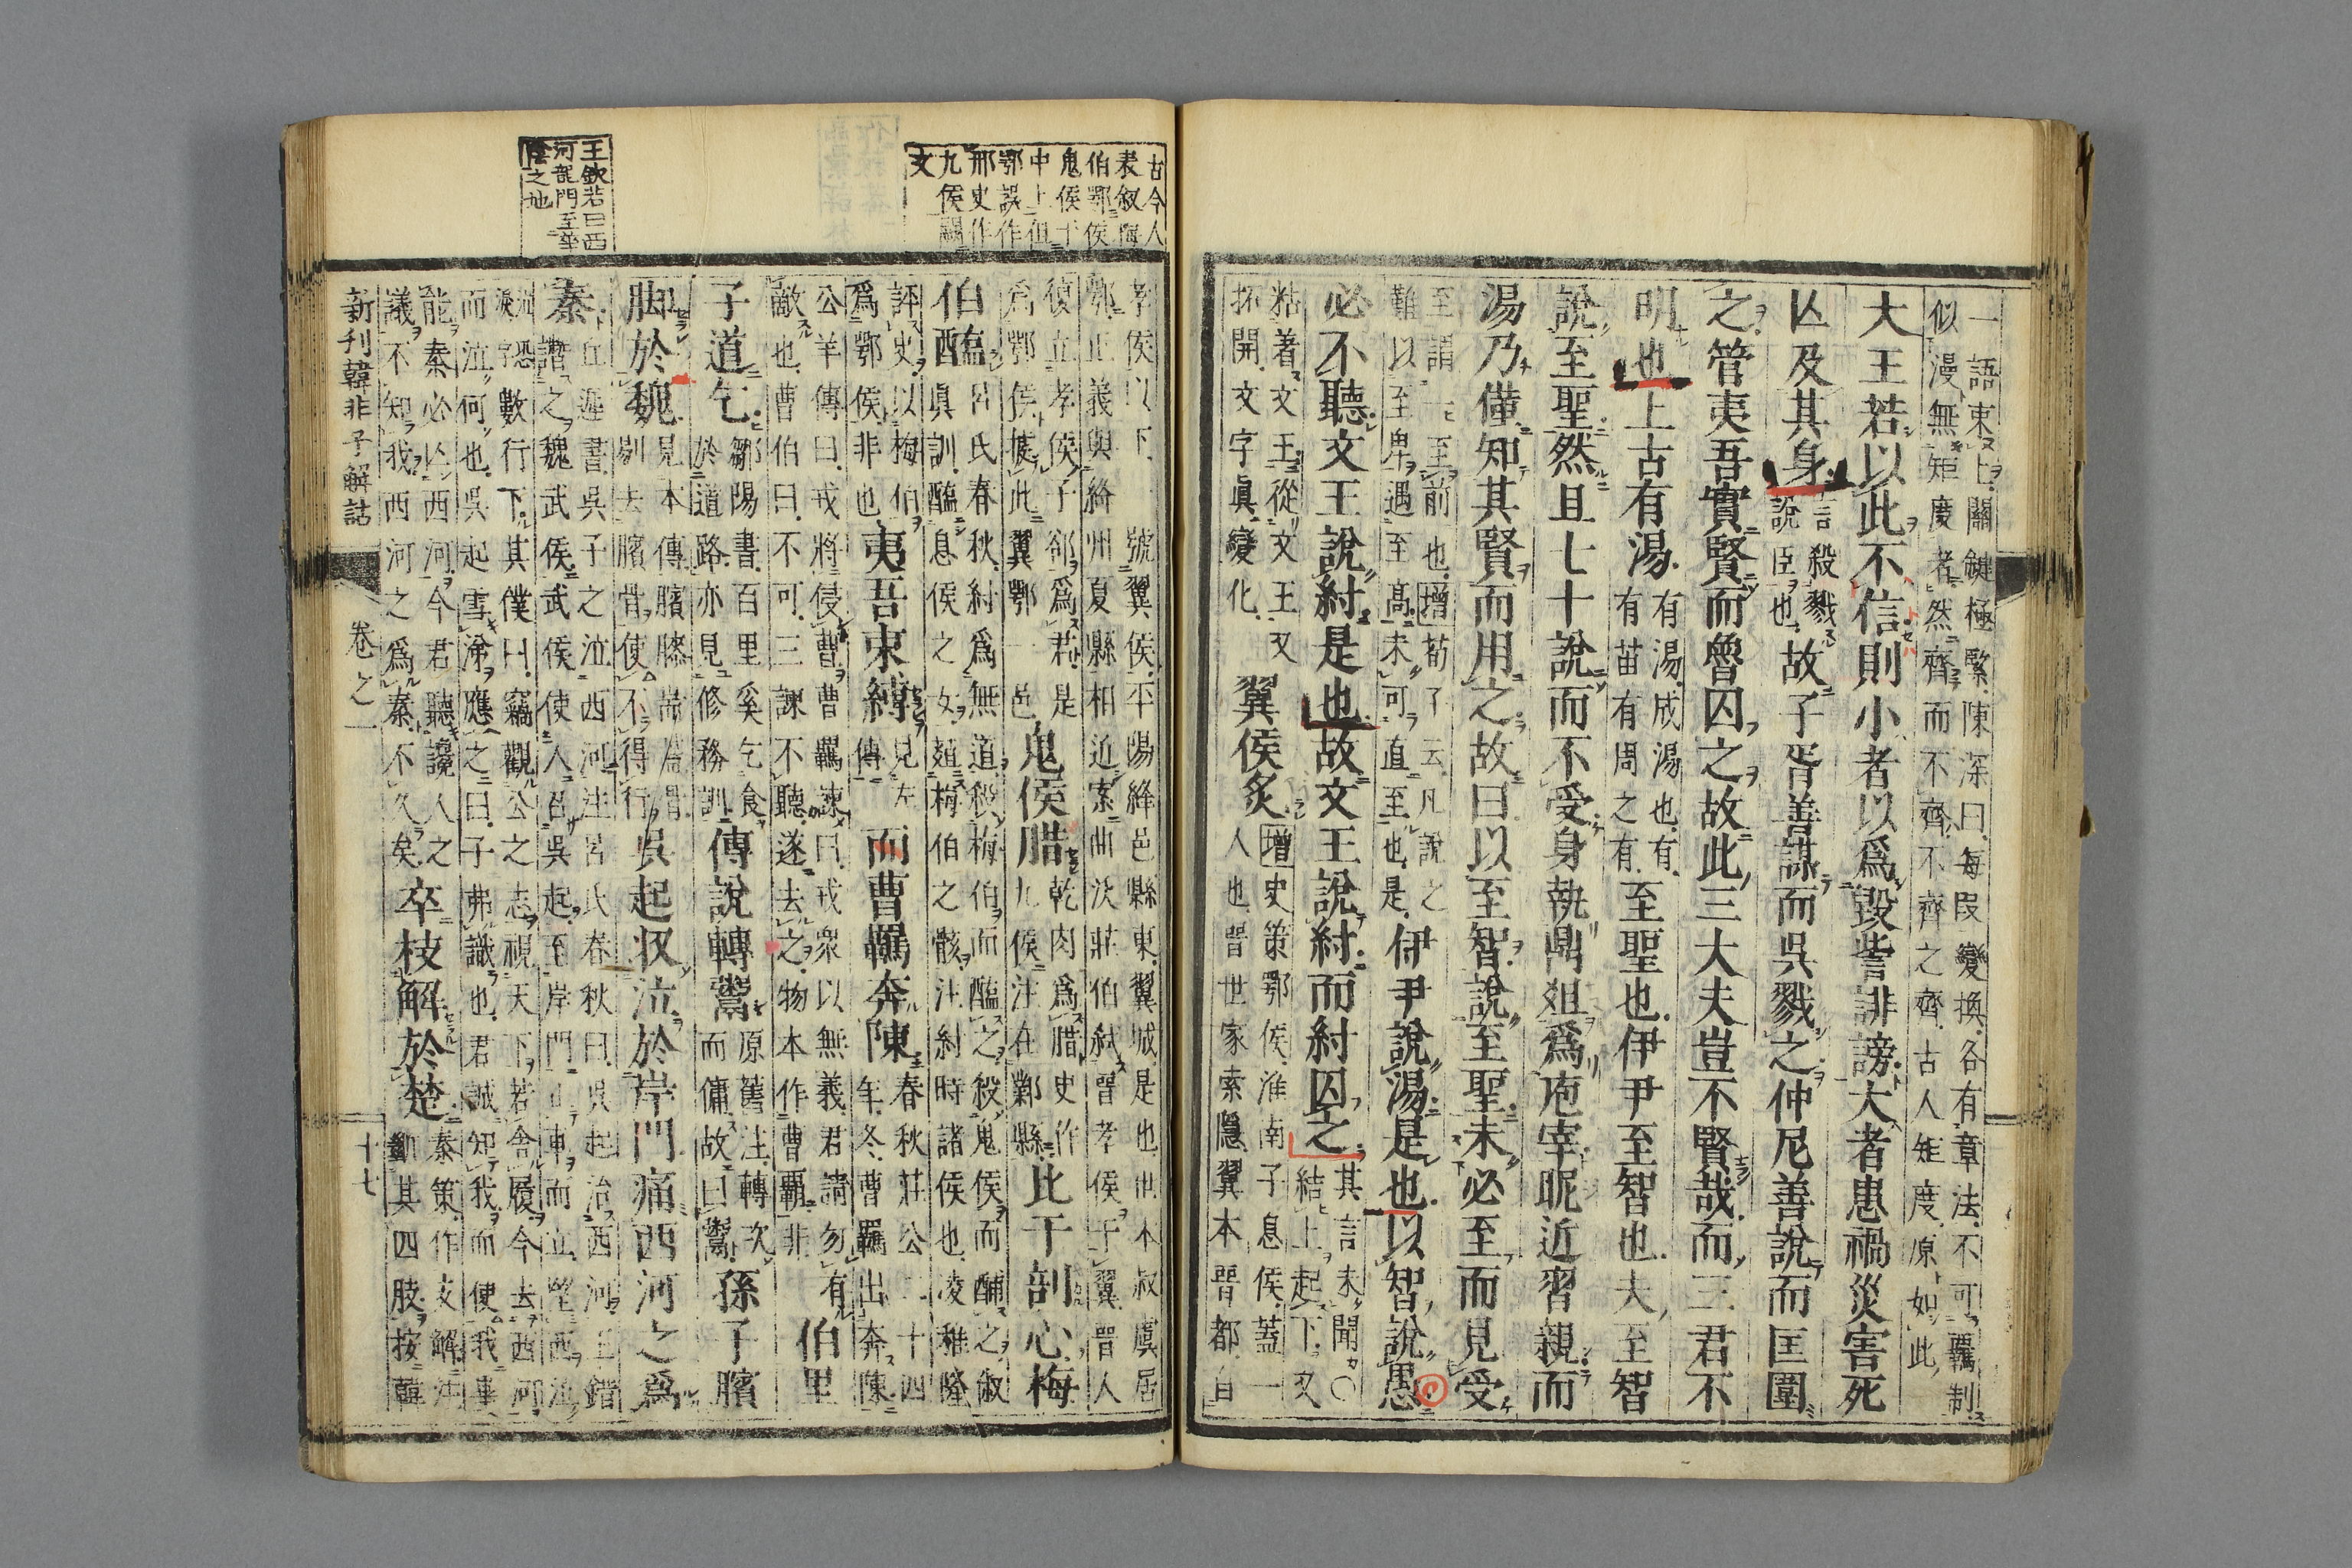 一語東上關鍵極緊陳深曰每段變換各有章法不可羈制
似漫無矩度者然齊而不齊不齊之齊古人矩度原如此
大王若以此不信則小者以爲毀訾誹謗大者患禍災害死
亾及其身言殺戮說臣也故子胥善謀而吳戮之仲尼善說而匡圍
之管夷吾實賢而魯囚之故此三大夫豈不賢哉而三君不
明也上古有湯有湯成湯也有有苗有周之有至聖也伊尹至智也夫至智
說至聖然且七十說而不受身執鼎俎爲庖宰昵近習親而
湯乃僅知其賢而用之故曰以至智說至聖未必至而見受
至謂至前也增荀子云凡說之難以至卑遇至高未可直至也是伊尹說湯是也以智說愚
必不聽文王說紂是也故文王說紂而紂囚之其言未聞〇結上起下又
粘著文王從文王又拆開文字眞變化翼侯炙增史策鄂侯淮南子息侯蓋一人也晉世家索隱翼本晉都自
孝侯以下號翼侯平陽絳邑縣東翼城是也世本叔虞居
鄂正義與絳州夏縣相近索曲沃莊伯弒晉孝侯于翼晉人
復立孝侯子郤爲君是爲鄂侯據此翼鄂一邑鬼侯腊乾肉爲腊史作九侯注在鄴縣比干剖心梅
伯醢呂氏春秋紂爲無道殺梅伯而醢之殺鬼侯而脯之淑眞訓醢息侯之女葅梅伯之骸注紂時諸侯也凌稚隆
評史以梅伯爲鄂侯非也夷吾束縛見左傳而曹羈奔陳春秋莊公二十四年冬曹羈出奔陳
公羊傳曰戎將侵曹曹羈諫曰戎衆以無義君請勿敵也曹伯曰不可三諫不聽遂去之物本作曹覊非有伯里
子道乞鄒陽書百里奚乞食於道路亦見修務訓傳說轉鬻原舊注轉次而傭故曰鬻孫子臏
脚於魏見本傳臏膝耑剔去臏骨使不得行吳起収泣於岸門痛西河之爲
秦丘遲書吳子之泣西河注呂氏春秋曰吳起治西河王錯譖之魏武侯武侯使人召吳起至岸門止車而立望西河
泣數行下其僕曰竊觀公之志視天下若舍履今去西河
而泣何也吳起雪涕應之曰子弗識也君誠知我而使我畢
能秦必亾西河今君聽讒人之議不知我西河之爲秦不久矣卒枝解於楚秦策作支解其四肢按韓
新刋韓非子解詁
卷之一
十七
古今人
表叙梅
伯鄂侯
鬼侯于
中上但
鄂誤作
邢史作
九侯
文
王欽若曰西
河龍門至華
陰之地